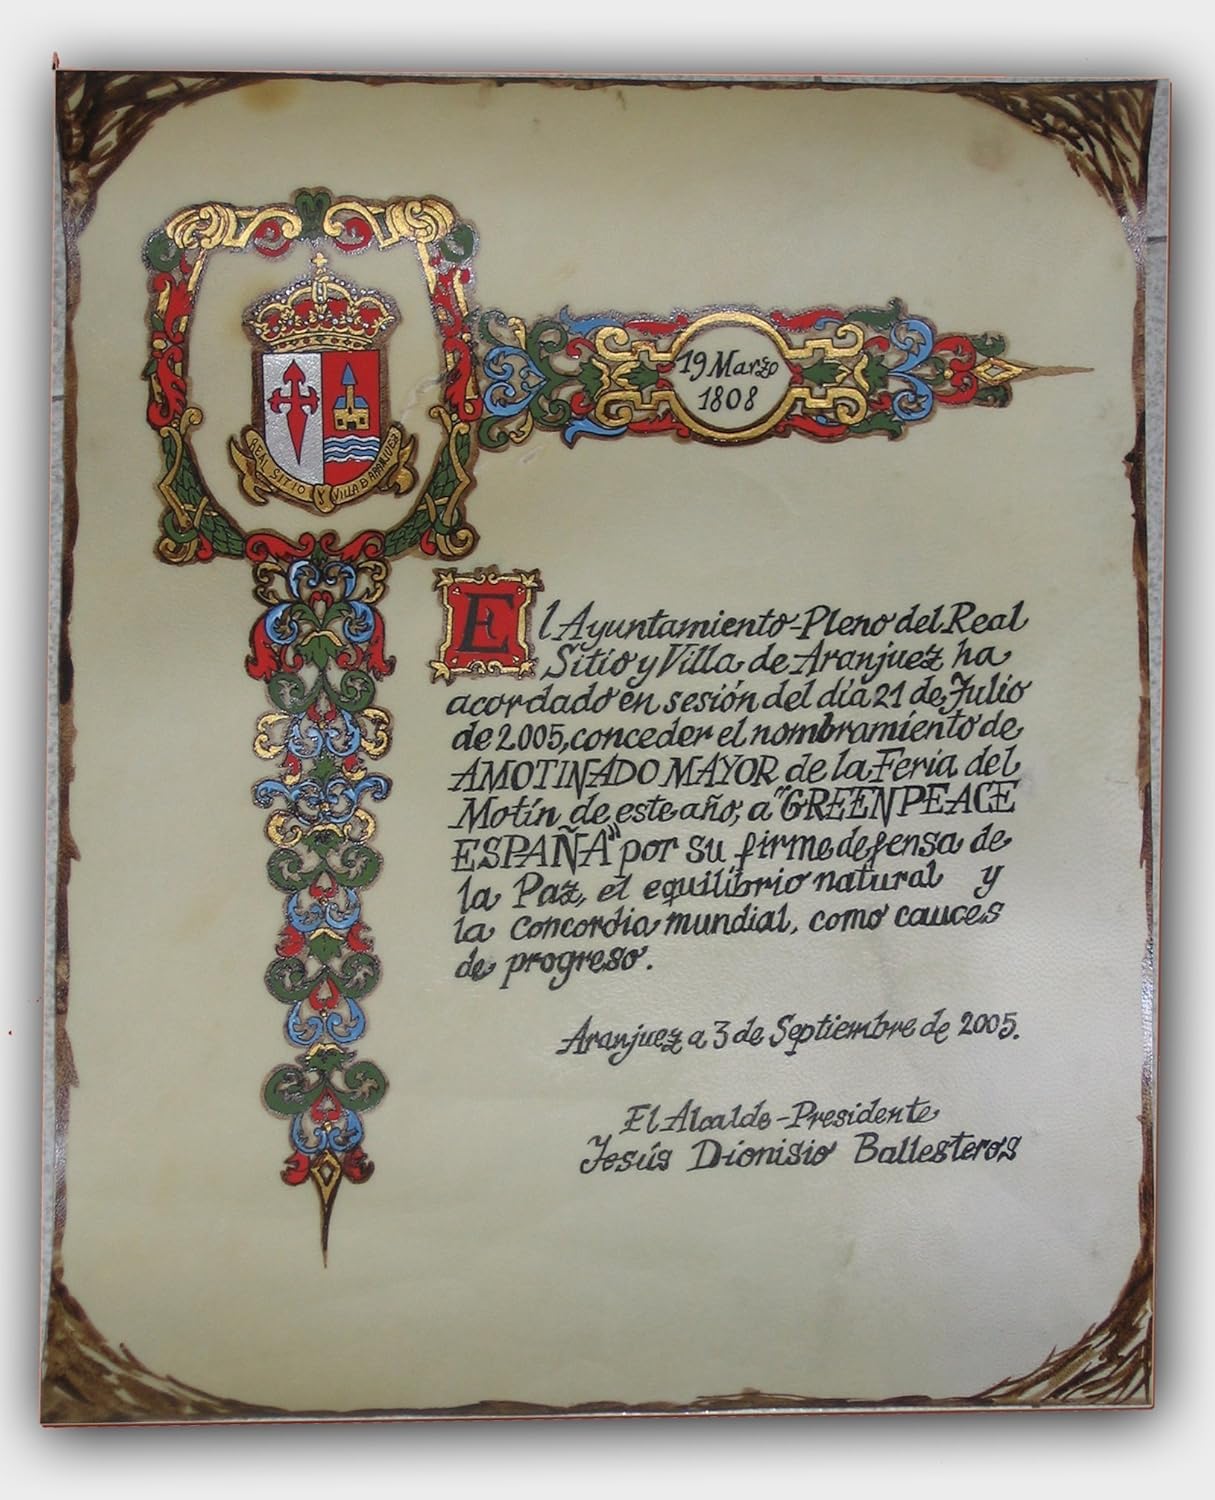 REAL SITIO Y VILLA D ARANJUEZ
19 Marzo
1808
El Ayuntamiento-Pleno del Real
Sitio y Villa de Aranjuez ha
acordado en sesión del día 21 de Julio
de 2.005, conceder el nombramiento de
AMOTINADO MAYOR de la Feria del
Motín de este año, a "GREENPEACE
ESPAÑA" por su firme defensa de
la Paz, el equilibrio natural y
la concordia mundial, como cauces
de progreso.
Aranjuez a 3 de Septiembre de 2005.
El Alcalde-Presidente
Jesús Dionisio Ballesteros